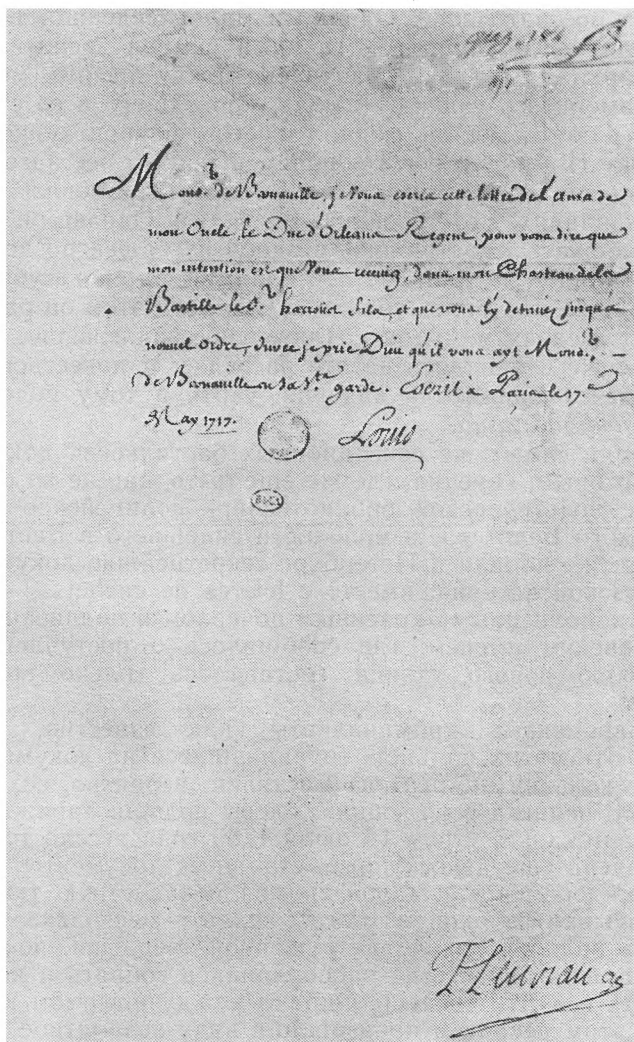 Mons.r de Bernaville, je vous escris cette lettre de l'avis de
mon Oncle, le Duc d'Orleans Regent, pour vous dire que
mon intention est que vous receviez dans mon Chasteau de la
Bastille le S.r Harroüet fils, et que vous l'y deteniez jusqu'à
nouvel ordre, Surce je prie Dieu qu'il vous ayt Mons.r
de Bernaville en Sa S.te garde. Escrit à Paris le 17.e
May 1717.
Louis